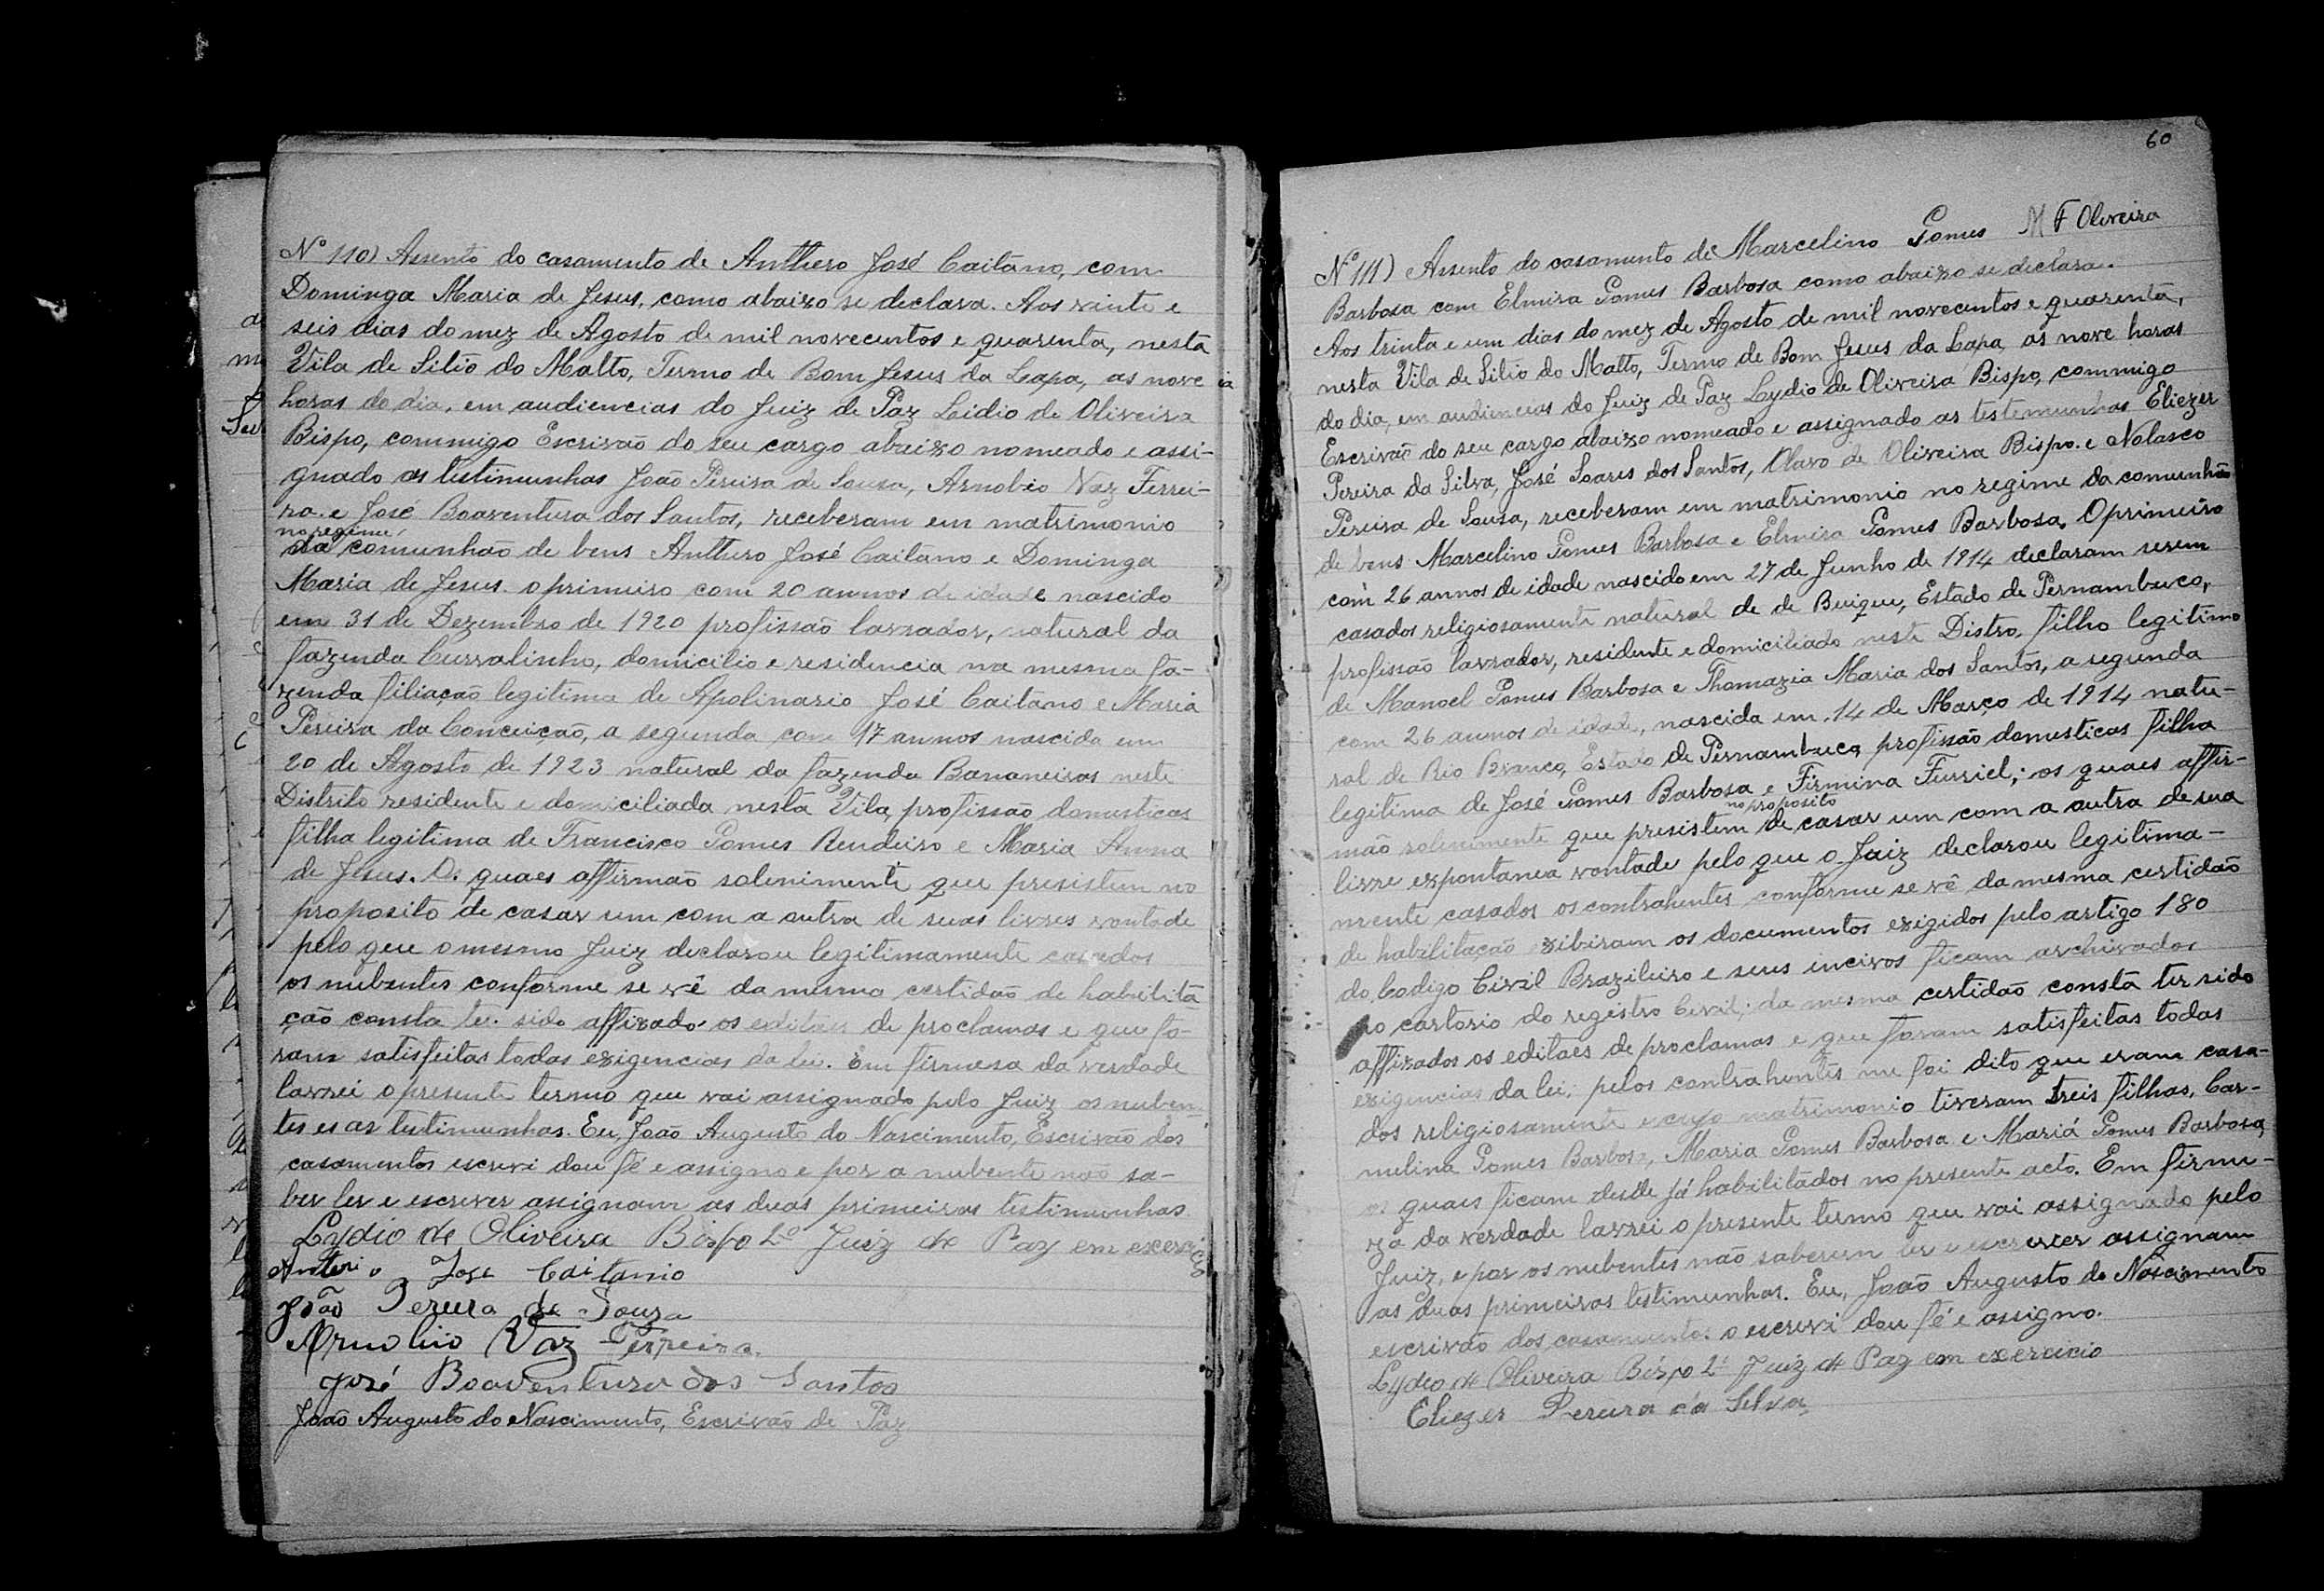 Nº 110) Assento do casamento de Anthero José Caitano, com
Dominga Maria de Jesus, como abaixo se declara. Aos vinte e
seis dias do mez de Agosto de mil novecentos e quarenta, nesta
Vila de Sitio do Matto, Termo de Bom Jesus da Lapa, as nove
horas do dia, em audiencias do Juiz de Paz Lidio de Oliveira
Bispo, commigo Escrivão do seu cargo abaixo nomeado e assi-
gnado as testimunhas João Pereira de Sousa, Arnobio Vaz Ferrei-
ra. e José Boaventura dos Santos, receberam em matrimonio
no regime
da comunhão de bens Anthero José Caitano e Dominga
Maria de Jesus. o primeiro com 20 annos de idade nascido
em 31 de Dezembro de 1920 profissão lavrador, natural da
fazenda Curralinho, domicilio e residencia na mesma fa-
zenda filiação legitima de Apolinario José Caitano e Maria
Pereira da Conceição, a segunda com 17 annos nascida em
20 de Agosto de 1923 natural da fazenda Bananeiras neste
Distrito residente e domiciliada nesta Vila, profissão domesticas
filha legitima de Francisco Gomes Rendeiro e Maria Anna
de Jesus. Os quaes affirmão solenimente que presistem no
proposito de casar um com a outra de suas livres vontade
pelo que o mesmo Juiz declarou legitimamente casados
os nubentes conforme se vê da mesma certidão de habilita
ção consta ter sido affixado os editaes de proclamas e que fo-
ram satisfeitas todas exigencias da lei. Em firmesa da verdade
lavrei o presente termo que vai assignado pelo Juiz os nuben-
tes e as testimunhas. Eu, João Augusto do Nascimento, Escrivão dos
casamentos escrevi dou fé e assigno e por a nubente não sa-
ber ler e escrever assignam as duas primeiras testimunhas
Lydio de Oliveira Bispo 2º Juiz de Paz em exercicio
Anteri o José Caitanio
João Pereira de Souza
Arnobio Vaz Ferreira.
José Boaventura dos Santos
João Augusto do Nascimento, Escrivão de Paz
60
M F Oliveira
Nº 111) Assento do casamento de Marcelino Gomes
Barbosa com Elmira Gomes Barbosa como abaixo se declara.
Aos trinta e um dias do mez de Agosto de mil novecentos e quarenta,
nesta Vila de Sitio do Matto, Termo de Bom Jesus da Lapa, as nove horas
do dia, em audiencias do Juiz de Paz Lydio de Oliveira Bispo, commigo
Escrivão do seu cargo abaixo nomeado e assignado as testemunhas Eliezer
Pereira da Silva, José Soares dos Santos, Olavo de Oliveira Bispo. e Nolasco
Pereira de Sousa, receberam em matrimonio no regime da comunhão
de bens Marcelino Gomes Barbosa e Elmira Gomes Barbosa. O primeiro
com 26 annos de idade nascido em 27 de Junho de 1914 declaram serem
casados religiosamente natural de de Buique, Estado de Pernambuco,
profissão lavrador, residente e domiciliado neste Distro, filho legitimo
de Manoel Gomes Barbosa e Thomazia Maria dos Santos, a segunda
com 26 annos de idade, nascida em 14 de Março de 1914 natu-
ral de Rio Branco, Estado de Pernambuco, profissão domesticas filha
legitima de José Gomes Barbosa e Firmina Furriel; os quaes affir-
no proposito
mão solenimente que presistem de casar um com a outra de sua
livre expontanea vontade pelo que o Juiz declarou legitima-
mente casados os contrahentes conforme se vê da mesma certidão
de habilitação exibiram os documentos exigidos pelo artigo 180
do Codigo Civil Brazileiro e seus incivos ficam archivados
no cartorio do registro Civil; da mesma certidão consta ter sido
affixados os editaes de proclamas e que foram satisfeitas todas
exigencias da lei; pelos contrahentes me foi dito que eram casa-
dos religiosamente e cujo matrimonio tiveram treis filhas, Car-
melina Gomes Barbosa, Maria Gomes Barbosa e Mariá Gomes Barbosa,
os quaes ficam desde já habilitados no presente acto. Em firme-
za da verdade lavrei o presente termo que vai assignado pelo
Juiz, e por os nubentes não saberem ler e escrever assignam
as duas primeiras testimunhas. Eu, João Augusto do Nascimento
escrivão dos casamentos o escrevi dou fé e assigno.
Lydio de Oliveira Bispo 2º Juiz de Paz em exercicio
Eliezer Pereira da Silva